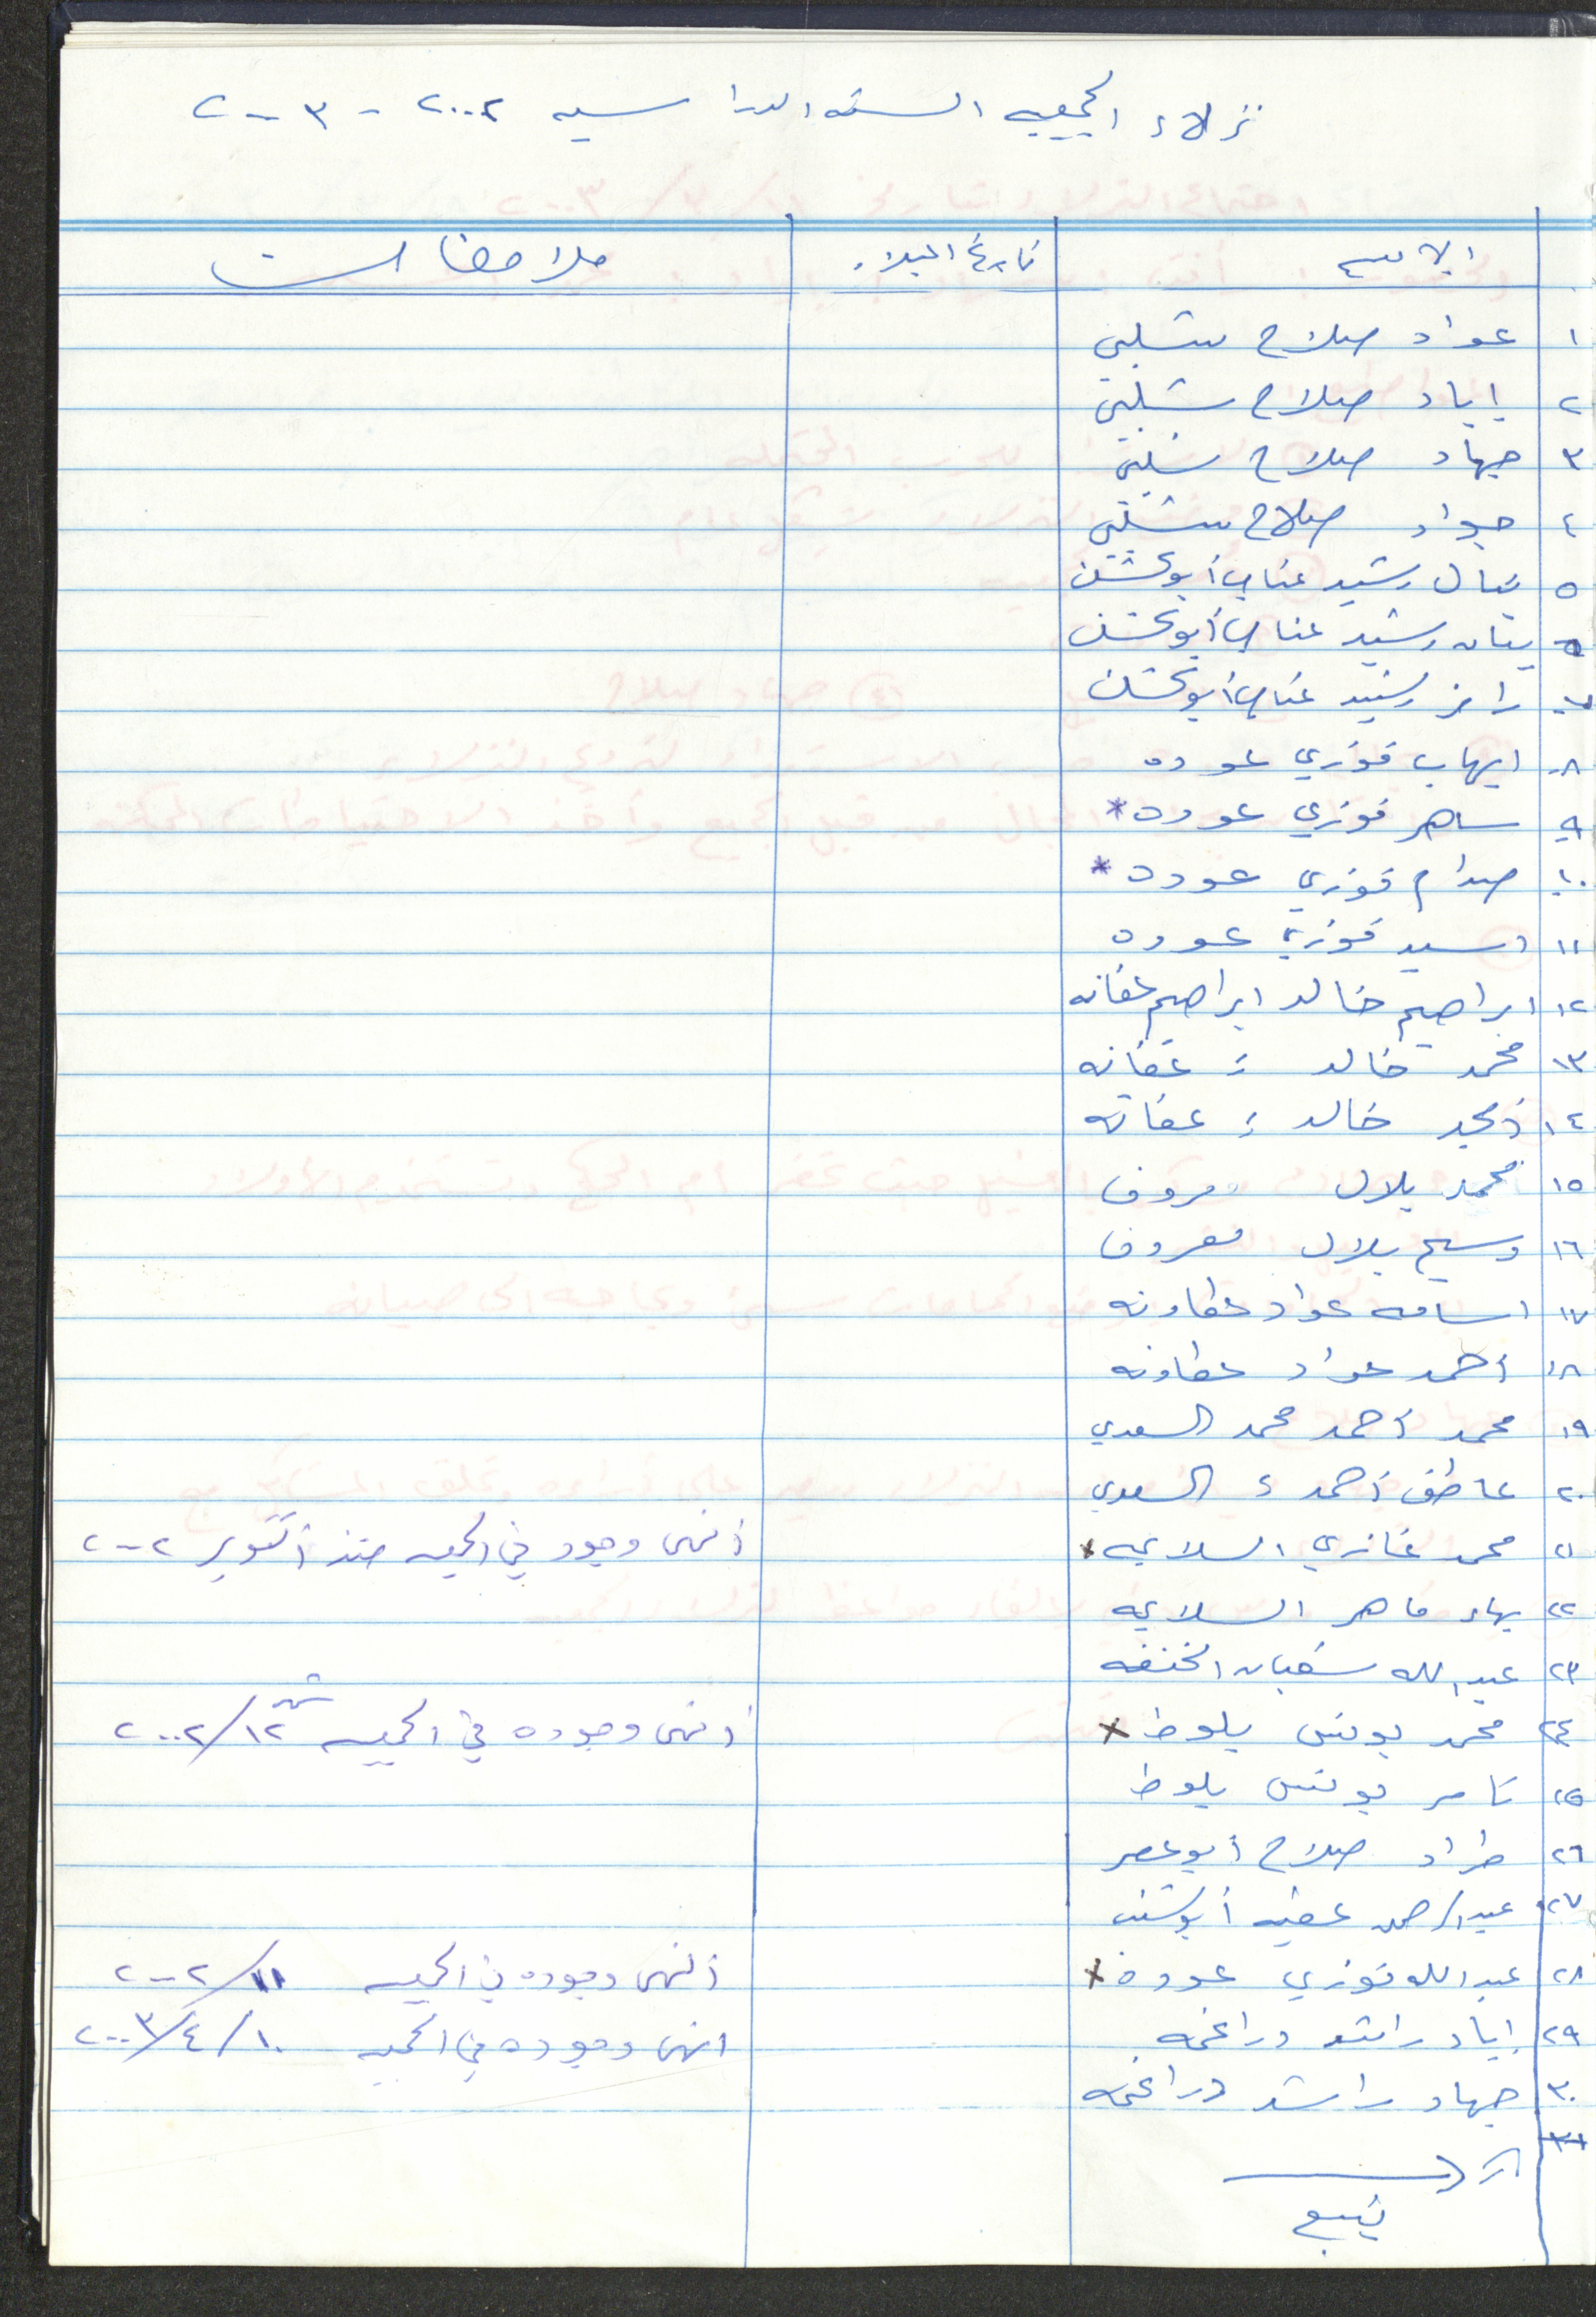 نزلاء الجمعيه السنه الدراسيه ٢٠٠٢ - ٢٠٠٣
الاسم تاريخ الميلاد ملاحظات
١ عواد صلاح شلبي
٢ اياد صلاح شلبي
٣ جهاد صلاح شلبي
٤ جواد صلاح شلبي
٥ نبال رشيد عناب أبو
٦ رشيد عناب أبو
٧ رامز رشيد عناب أبو
٨ ايهاب فوزي عوده
٩ ساهر فوزي عوده *
١٠ صدام فوزي عوده *
١١ اسيد فوزي عوده
١٢ ابراهيم خالد ابراهيم عفانه
١٣ محمد خالد = عفانه
١٤ أمجد خالد = عفانه
١٥ محمد بلال معروف
١٦ وسيم بلال معروف
١٧ اسامه عواد عطاونه
١٨ أحمد عواد عطاونه
١٩ محمد أحمد محمد السعدي
٢٠ عاطف أحمد = السعدي
٢١ محمد غازي السلايمه x أنهى وجود في الجمعيه منذ أكتوبر ٢٠٠٢
٢٢ بهاء ماهر السلايمه
٢٣ عبد الله شعبان
٢٤ محمد يونس بلوط x أنهى وجوده في الجمعيه شهر ١٢/٢٠٠٢
٢٥ تامر يونس بلوط
٢٦ طراد صلاح أبو عصر
٢٧ عبد الرحمن عطيه أبو
٢٨ عبد الله فوزي عوده x أنهى وجوده في الجمعيه ١١/٢٠٠٢
٢٩ اياد راشد دراغمه انهى وجوده في الجمعيه ١٠/٤/٢٠٠٣
٣٠ جهاد راشد دراغمه
٣١
يتبع